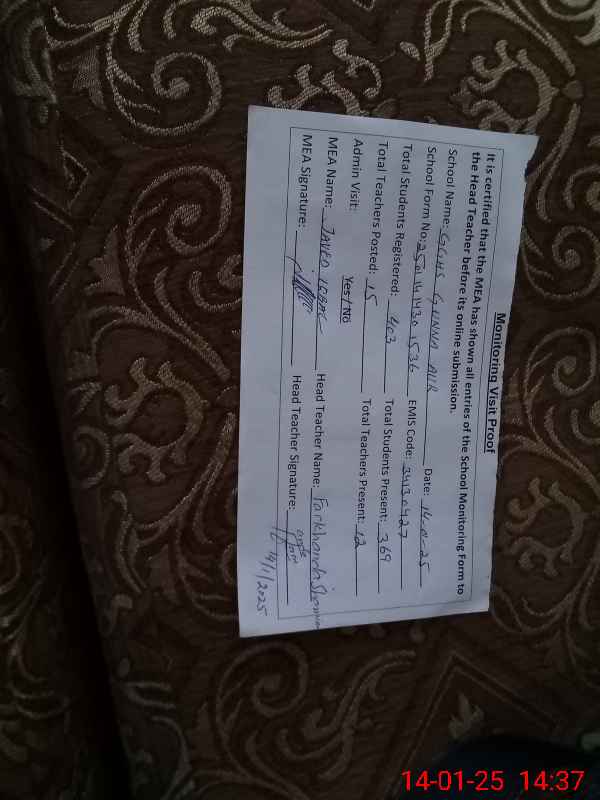 Monitoring Visit Proof
It is certified that the MEA has shown all entries of the School Monitoring Form to
the Head Teacher before its online submission.
School Name: GGHS Date: 14-01-25
School Form No: 250141430 1536 EMIS Code: 34130427
Total Students Registered: 403 Total Students Present: 369
Total Teachers Posted: 15 Total Teachers Present: 12
Admin Visit: Yes/No
MEA Name: JAVED IQBAL Head Teacher Name: Farkhanda
MEA Signature: Head Teacher Signature:
14/1/2025
14-01-25 14:37